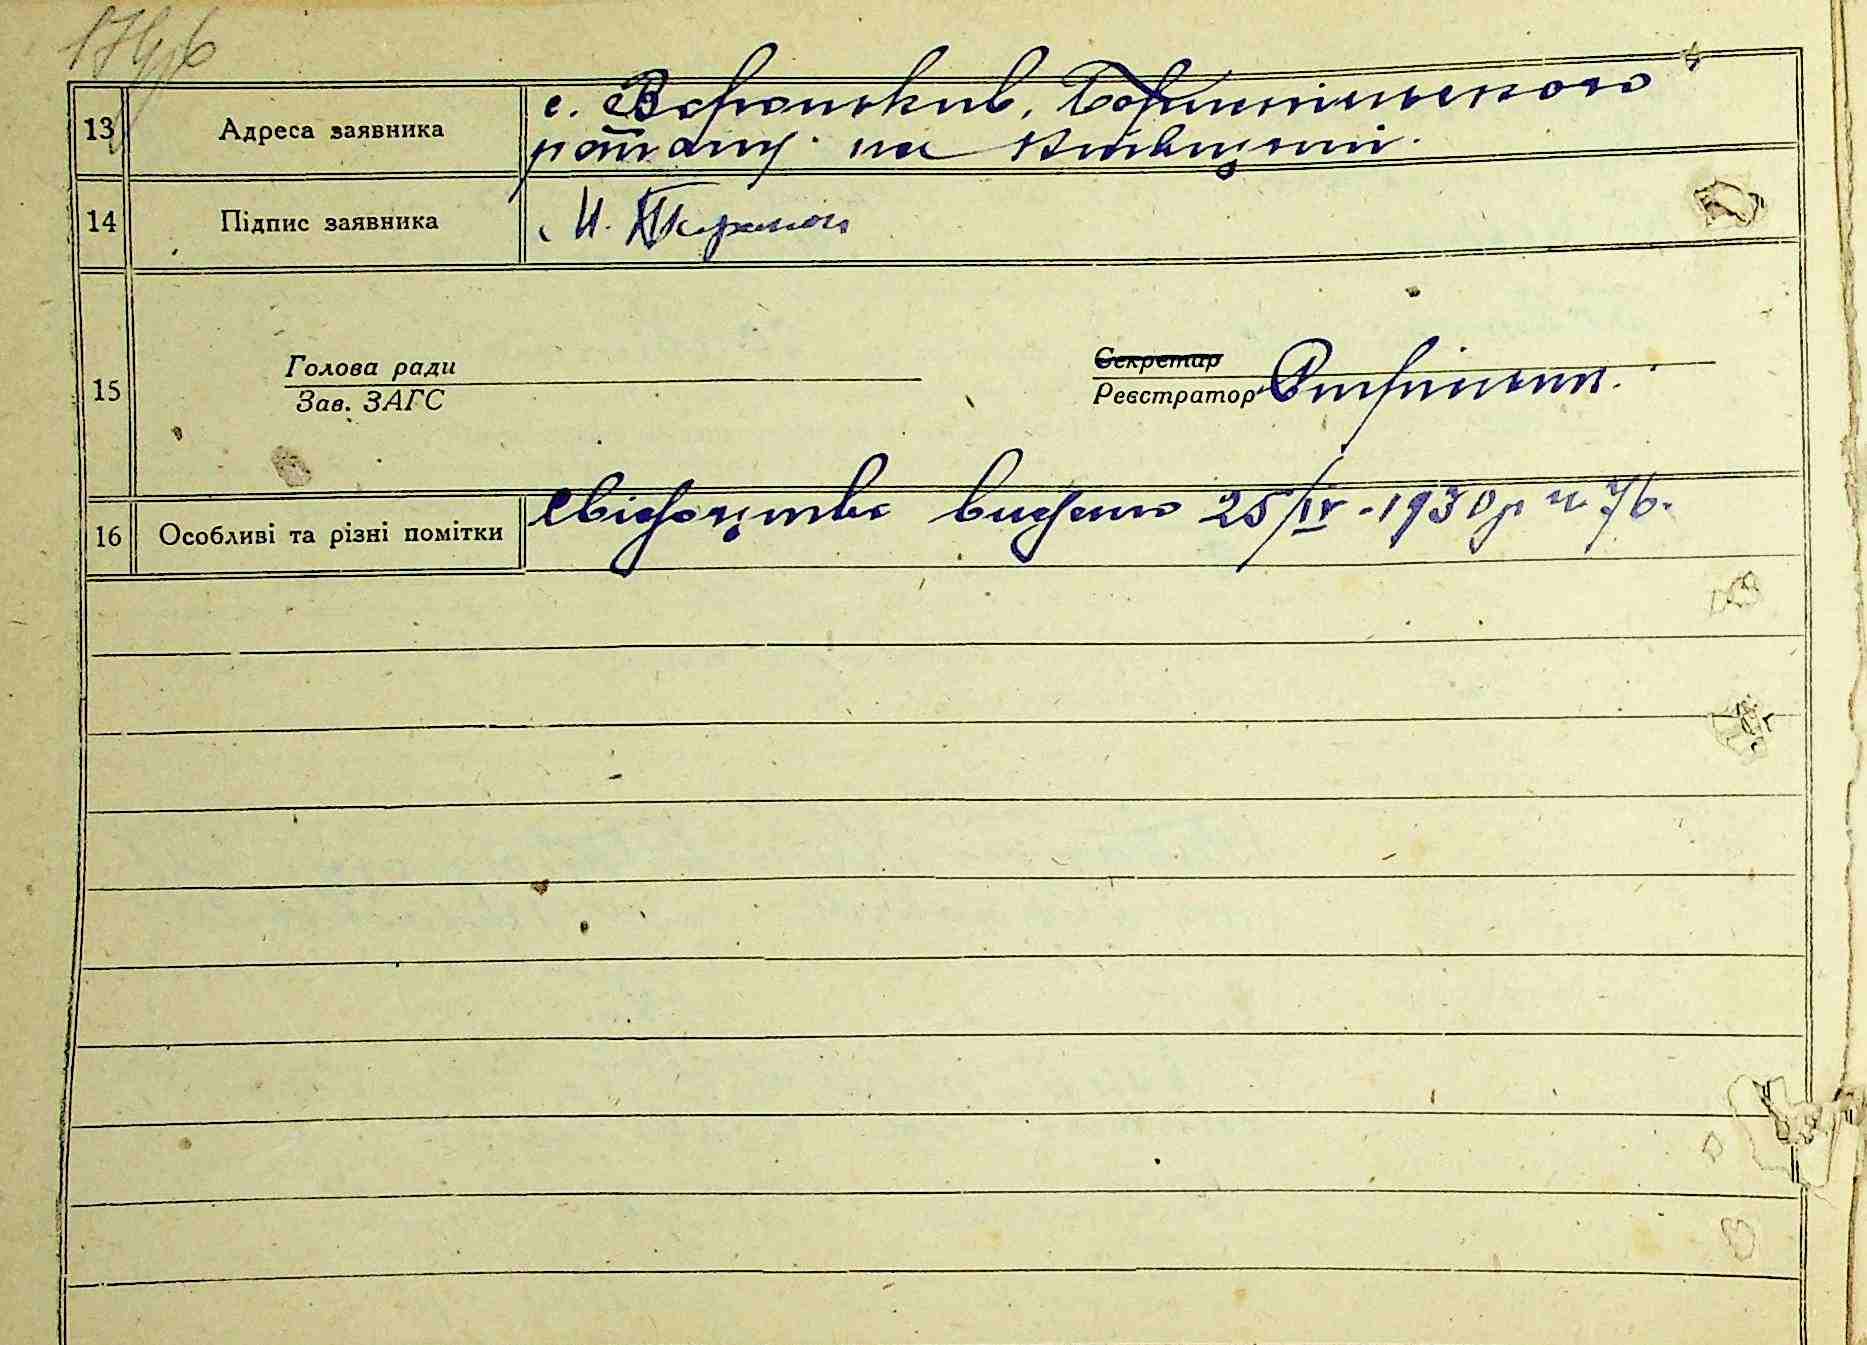 13 Адреса заявника с. Вороньків, Бориспільського
району на Київщині.
14 Підпис заявника И.
15 Голова ради Секретар
Зав. ЗАГС Реєстратор
16 Особливі та різні помітки Свідоцтво видано 25/IV-1930р № 76.